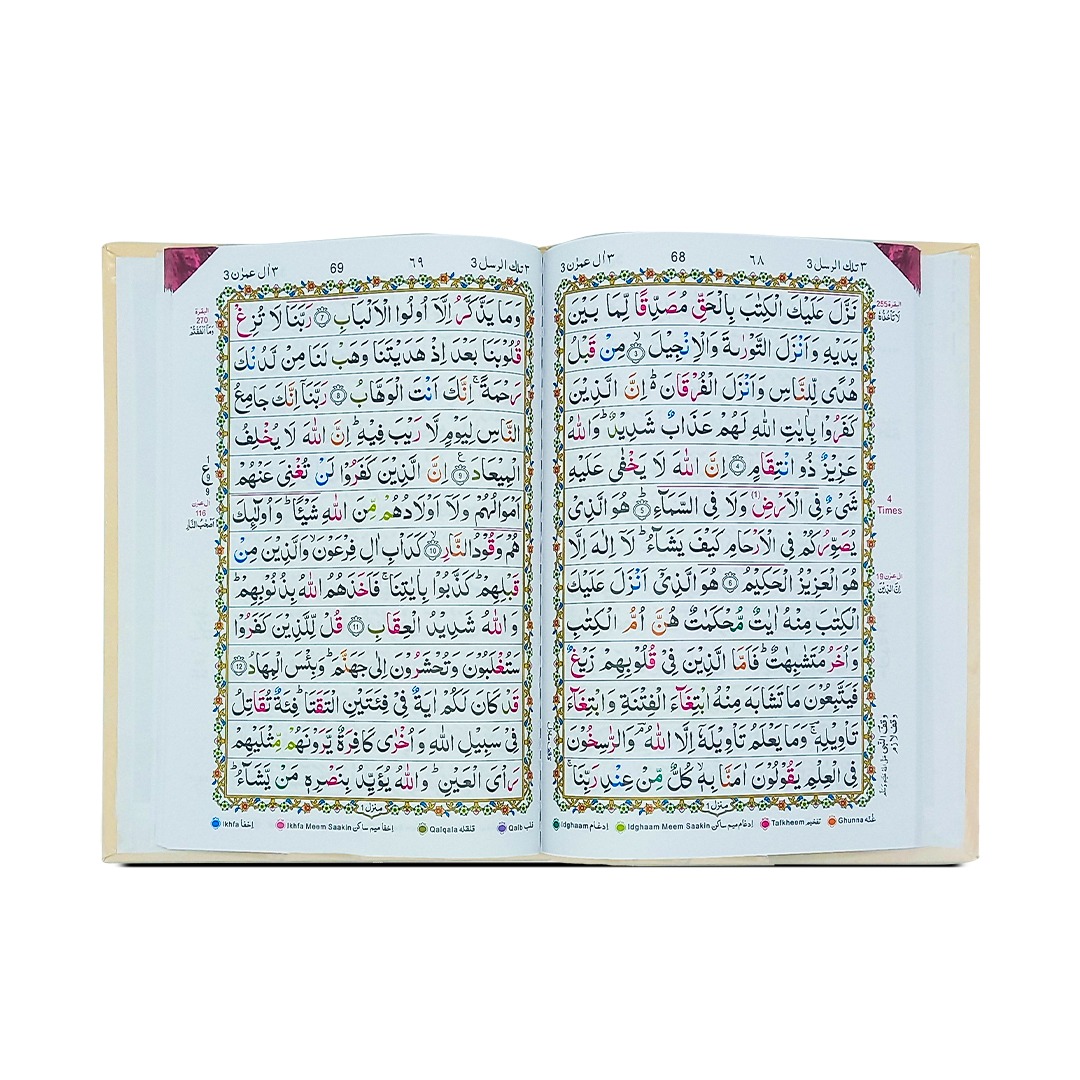 ٣ تلك الرسل 3
٦٨
68
٣ اٰل عمرٰن 3
نَزَّلَ عَلَيْكَ الْكِتٰبَ بِالْحَقِّ مُصَدِّقًا لِّمَا بَيْنَ
يَدَيْهِ وَاَنْزَلَ التَّوْرٰىةَ وَالْاِنْجِيْلَ ۙ ٣ مِنْ قَبْلُ
هُدًى لِّلنَّاسِ وَاَنْزَلَ الْفُرْقَانَ ؕ اِنَّ الَّذِيْنَ
كَفَرُوْا بِاٰيٰتِ اللّٰهِ لَهُمْ عَذَابٌ شَدِيْدٌ ؕ وَاللّٰهُ
عَزِيْزٌ ذُو انْتِقَامٍ ٤ اِنَّ اللّٰهَ لَا يَخْفٰى عَلَيْهِ
شَيْءٌ فِى الْاَرْضِ وَلَا فِى السَّمَآءِ ؕ ٥ هُوَ الَّذِيْ
يُصَوِّرُكُمْ فِى الْاَرْحَامِ كَيْفَ يَشَآءُ ؕ لَاۤ اِلٰهَ اِلَّا
هُوَ الْعَزِيْزُ الْحَكِيْمُ ٦ هُوَ الَّذِيْۤ اَنْزَلَ عَلَيْكَ
الْكِتٰبَ مِنْهُ اٰيٰتٌ مُّحْكَمٰتٌ هُنَّ اُمُّ الْكِتٰبِ
وَاُخَرُ مُتَشٰبِهٰتٌ ؕ فَاَمَّا الَّذِيْنَ فِيْ قُلُوْبِهِمْ زَيْغٌ
فَيَتَّبِعُوْنَ مَا تَشَابَهَ مِنْهُ ابْتِغَآءَ الْفِتْنَةِ وَابْتِغَآءَ
تَاْوِيْلِهٖ ۚ وَمَا يَعْلَمُ تَاْوِيْلَهٗۤ اِلَّا اللّٰهُ ۘ وَالرّٰسِخُوْنَ
فِى الْعِلْمِ يَقُوْلُوْنَ اٰمَنَّا بِهٖ ۙ كُلٌّ مِّنْ عِنْدِ رَبِّنَا ۚ
منزل ١
البقرة 255
4
Times
اٰل عمرٰن 18
Idghaam ادغام
Idghaam Meem Saakin ادغام میم ساکن
Talkheem تفخیم
Ghunna غنّه
٣ تلك الرسل 3
٦٩
69
٣ اٰل عمرٰن 3
وَمَا يَذَّكَّرُ اِلَّاۤ اُولُوا الْاَلْبَابِ ٧ رَبَّنَا لَا تُزِغْ
قُلُوْبَنَا بَعْدَ اِذْ هَدَيْتَنَا وَهَبْ لَنَا مِنْ لَّدُنْكَ
رَحْمَةً ۚ اِنَّكَ اَنْتَ الْوَهَّابُ ٨ رَبَّنَاۤ اِنَّكَ جَامِعُ
النَّاسِ لِيَوْمٍ لَّا رَيْبَ فِيْهِ ؕ اِنَّ اللّٰهَ لَا يُخْلِفُ
الْمِيْعَادَ ٩ اِنَّ الَّذِيْنَ كَفَرُوْا لَنْ تُغْنِيَ عَنْهُمْ
اَمْوَالُهُمْ وَلَاۤ اَوْلَادُهُمْ مِّنَ اللّٰهِ شَيْـًٔا ؕ وَاُولٰٓئِكَ
هُمْ وَقُوْدُ النَّارِ ۙ ١٠ كَدَاْبِ اٰلِ فِرْعَوْنَ ۙ وَالَّذِيْنَ مِنْ
قَبْلِهِمْ ؕ كَذَّبُوْا بِاٰيٰتِنَا ۚ فَاَخَذَهُمُ اللّٰهُ بِذُنُوْبِهِمْ ؕ
وَاللّٰهُ شَدِيْدُ الْعِقَابِ ١١ قُلْ لِّلَّذِيْنَ كَفَرُوْا
سَتُغْلَبُوْنَ وَتُحْشَرُوْنَ اِلٰى جَهَنَّمَ ؕ وَبِئْسَ الْمِهَادُ ١٢
قَدْ كَانَ لَكُمْ اٰيَةٌ فِيْ فِئَتَيْنِ الْتَقَتَا ؕ فِئَةٌ تُقَاتِلُ
فِيْ سَبِيْلِ اللّٰهِ وَاُخْرٰى كَافِرَةٌ يَّرَوْنَهُمْ مِّثْلَيْهِمْ
رَاْيَ الْعَيْنِ ؕ وَاللّٰهُ يُؤَيِّدُ بِنَصْرِهٖ مَنْ يَّشَآءُ ؕ
منزل ١
البقرة
270
ع
9
اٰل عمرٰن
116
اصحٰب النار
Ikhfa اخفا
Ikhfa Meem Saakin اخفا میم ساکن
Qalqala قلقله
Qalb قلب